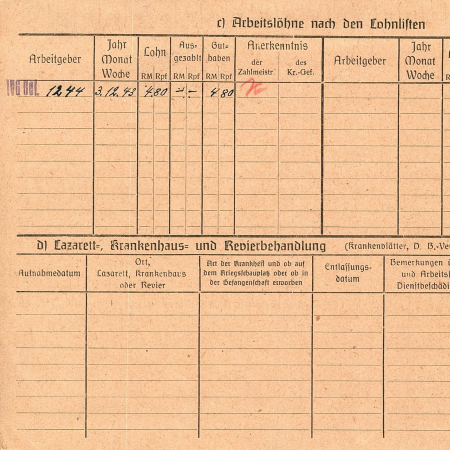 c) Arbeitslöhne nach den Lohnlisten
Arbeitgeber
Jahr Monat Woche
Lohn
RM Rpf
Ausgezahlt
RM Rpf
Guthaben
RM Rpf
Anerkenntnis
der Zahlmeistr.
des Kr.-Gef.
Arbeitgeber
Jahr Monat Woche
1244 3.12.43 4 80 - - 4 80
d) Lazarett-, Krankenhaus- und Revierbehandlung (Krankenblätter, D. B.-Ve
Aufnahmedatum
Ort,
Lazarett, Krankenhaus
oder Revier
Art der Krankheit und ob auf
dem Kriegsschauplatz oder ob in
der Gefangenschaft erworben
Entlassungs-
datum
Bemerkungen ü
und Arbeitsf
Dienstbeschädi